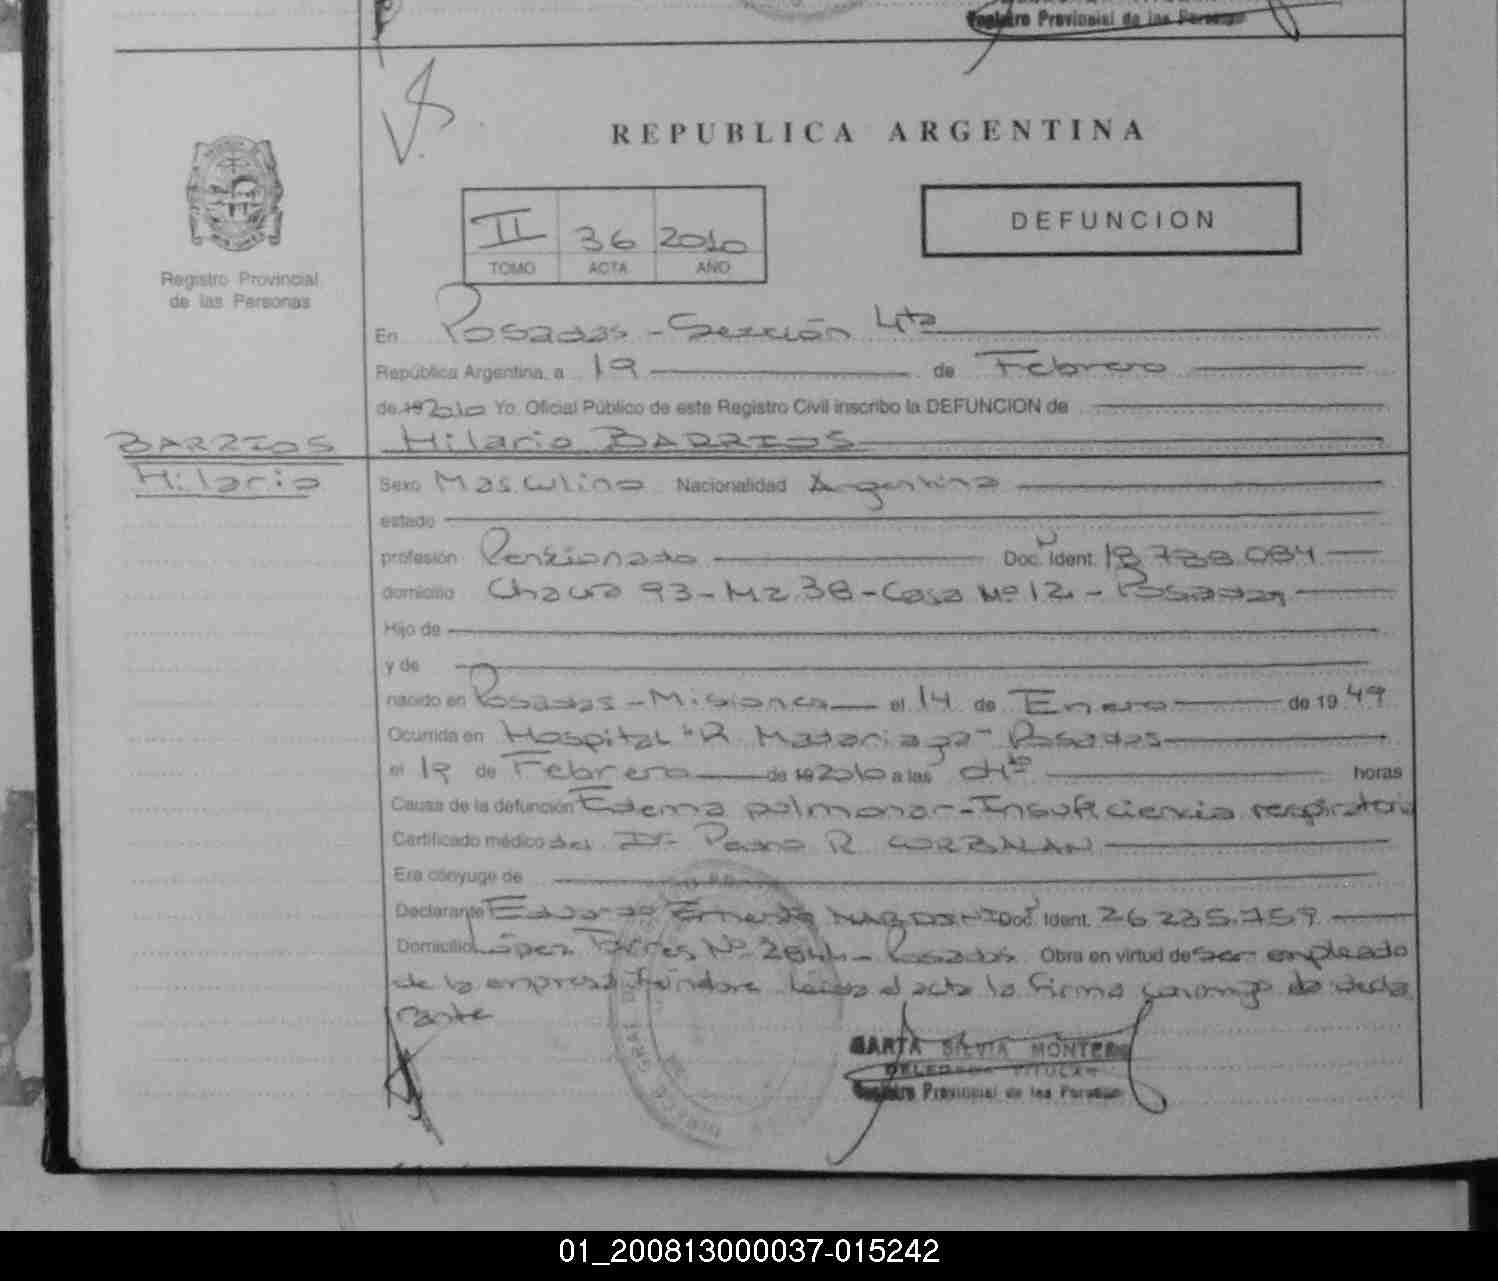 Registro Provincial de las Personas
REPUBLICA ARGENTINA
DEFUNCION
II 36 2010
TOMO ACTA AÑO
Registro Provincial
de las Personas
En Posadas - Sección 4ta
República Argentina, a 19 de Febrero
de 19 2010 Yo, Oficial Público de este Registro Civil inscribo la DEFUNCION de
BARRIOS
Hilario
Hilario BARRIOS
Sexo Masculino Nacionalidad Argentina
estado
profesión Pensionado Doc. Ident. 8.788.084
domicilio Chacra 93 - Mz 38 - Casa Nº 12 - Posadas
Hijo de
y de
nacido en Posadas - Misiones el 14 de Enero de 19 49
Ocurrida en Hospital "R. Madariaga" Posadas
el 19 de Febrero de 19 2010 a las horas
Causa de la defunción Edema pulmonar - Insuficiencia respiratoria
Certificado médico del Dr. Pedro R. CORBALAN
Era cónyuge de
Declarante Eduardo Ernesto Doc. Ident. 26.235.759
Domicilio López Torres Nº 2844 - Posadas Obra en virtud de ser empleado
de la empresa fúnebre. Leída el acta la firma conmigo el decla
rante
MARTA SILVIA MONTERO
DELEGADA TITULAR
Registro Provincial de las Personas
01_200813000037-015242